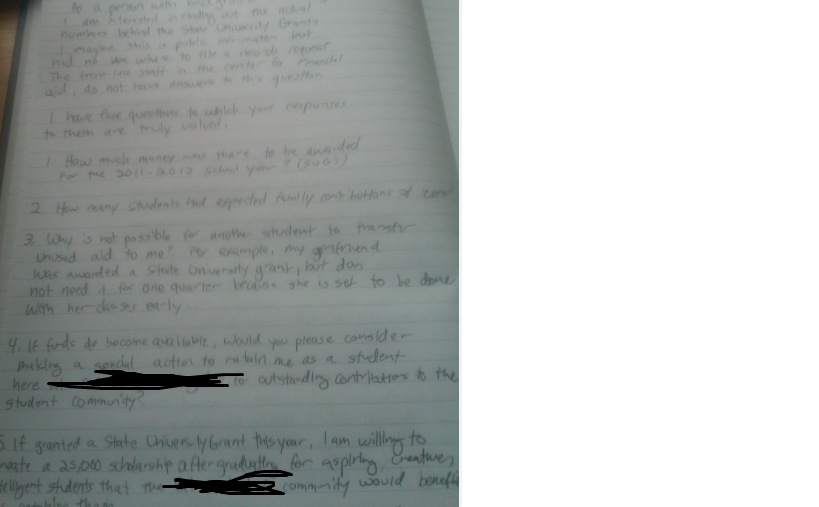 As a person with
I am interested in finding out the actual
numbers behind the State University Grants
I imagine this is public information but
had no idea where to file a records request
The front line staff in the center for Financial
aid, do not have answers to this question
I have five questions to which your responses
to them are truly valued.
1. How much money was there to be awarded
For the 2011-2012 school year? (SUGs)
2 How many students had expected family contributions of zero
3. Why is not possible for another student to transfer
unused aid to me? For example, my girlfriend
was awarded a State University grant, but does
not need it for one quarter because she is set to be done
with her classes early.
4. If funds do become available, would you please consider
making a special action to retain me as a student
here for outstanding contributions to the
student community?
5 If granted a State University Grant this year, I am willing to
create a 25,000 scholarship after graduating for aspiring, creative,
telligent students that the community would benefit
them